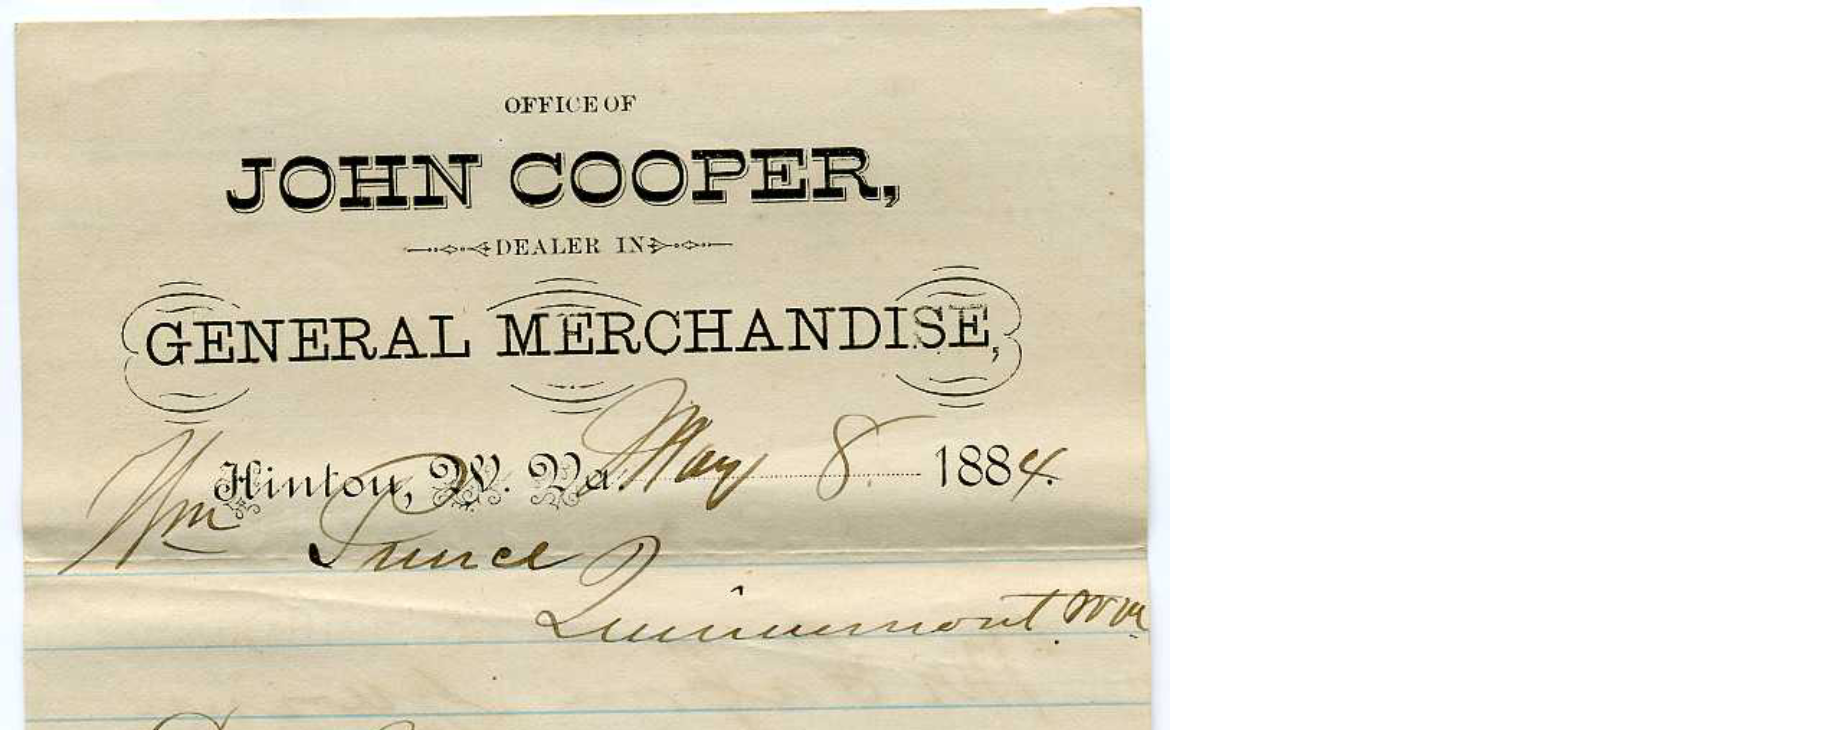 OFFICE OF
JOHN COOPER,
DEALER IN
GENERAL MERCHANDISE,
Hinton, W. Va. May 8 1884.
Wm Prince
Quinnemont, W Va